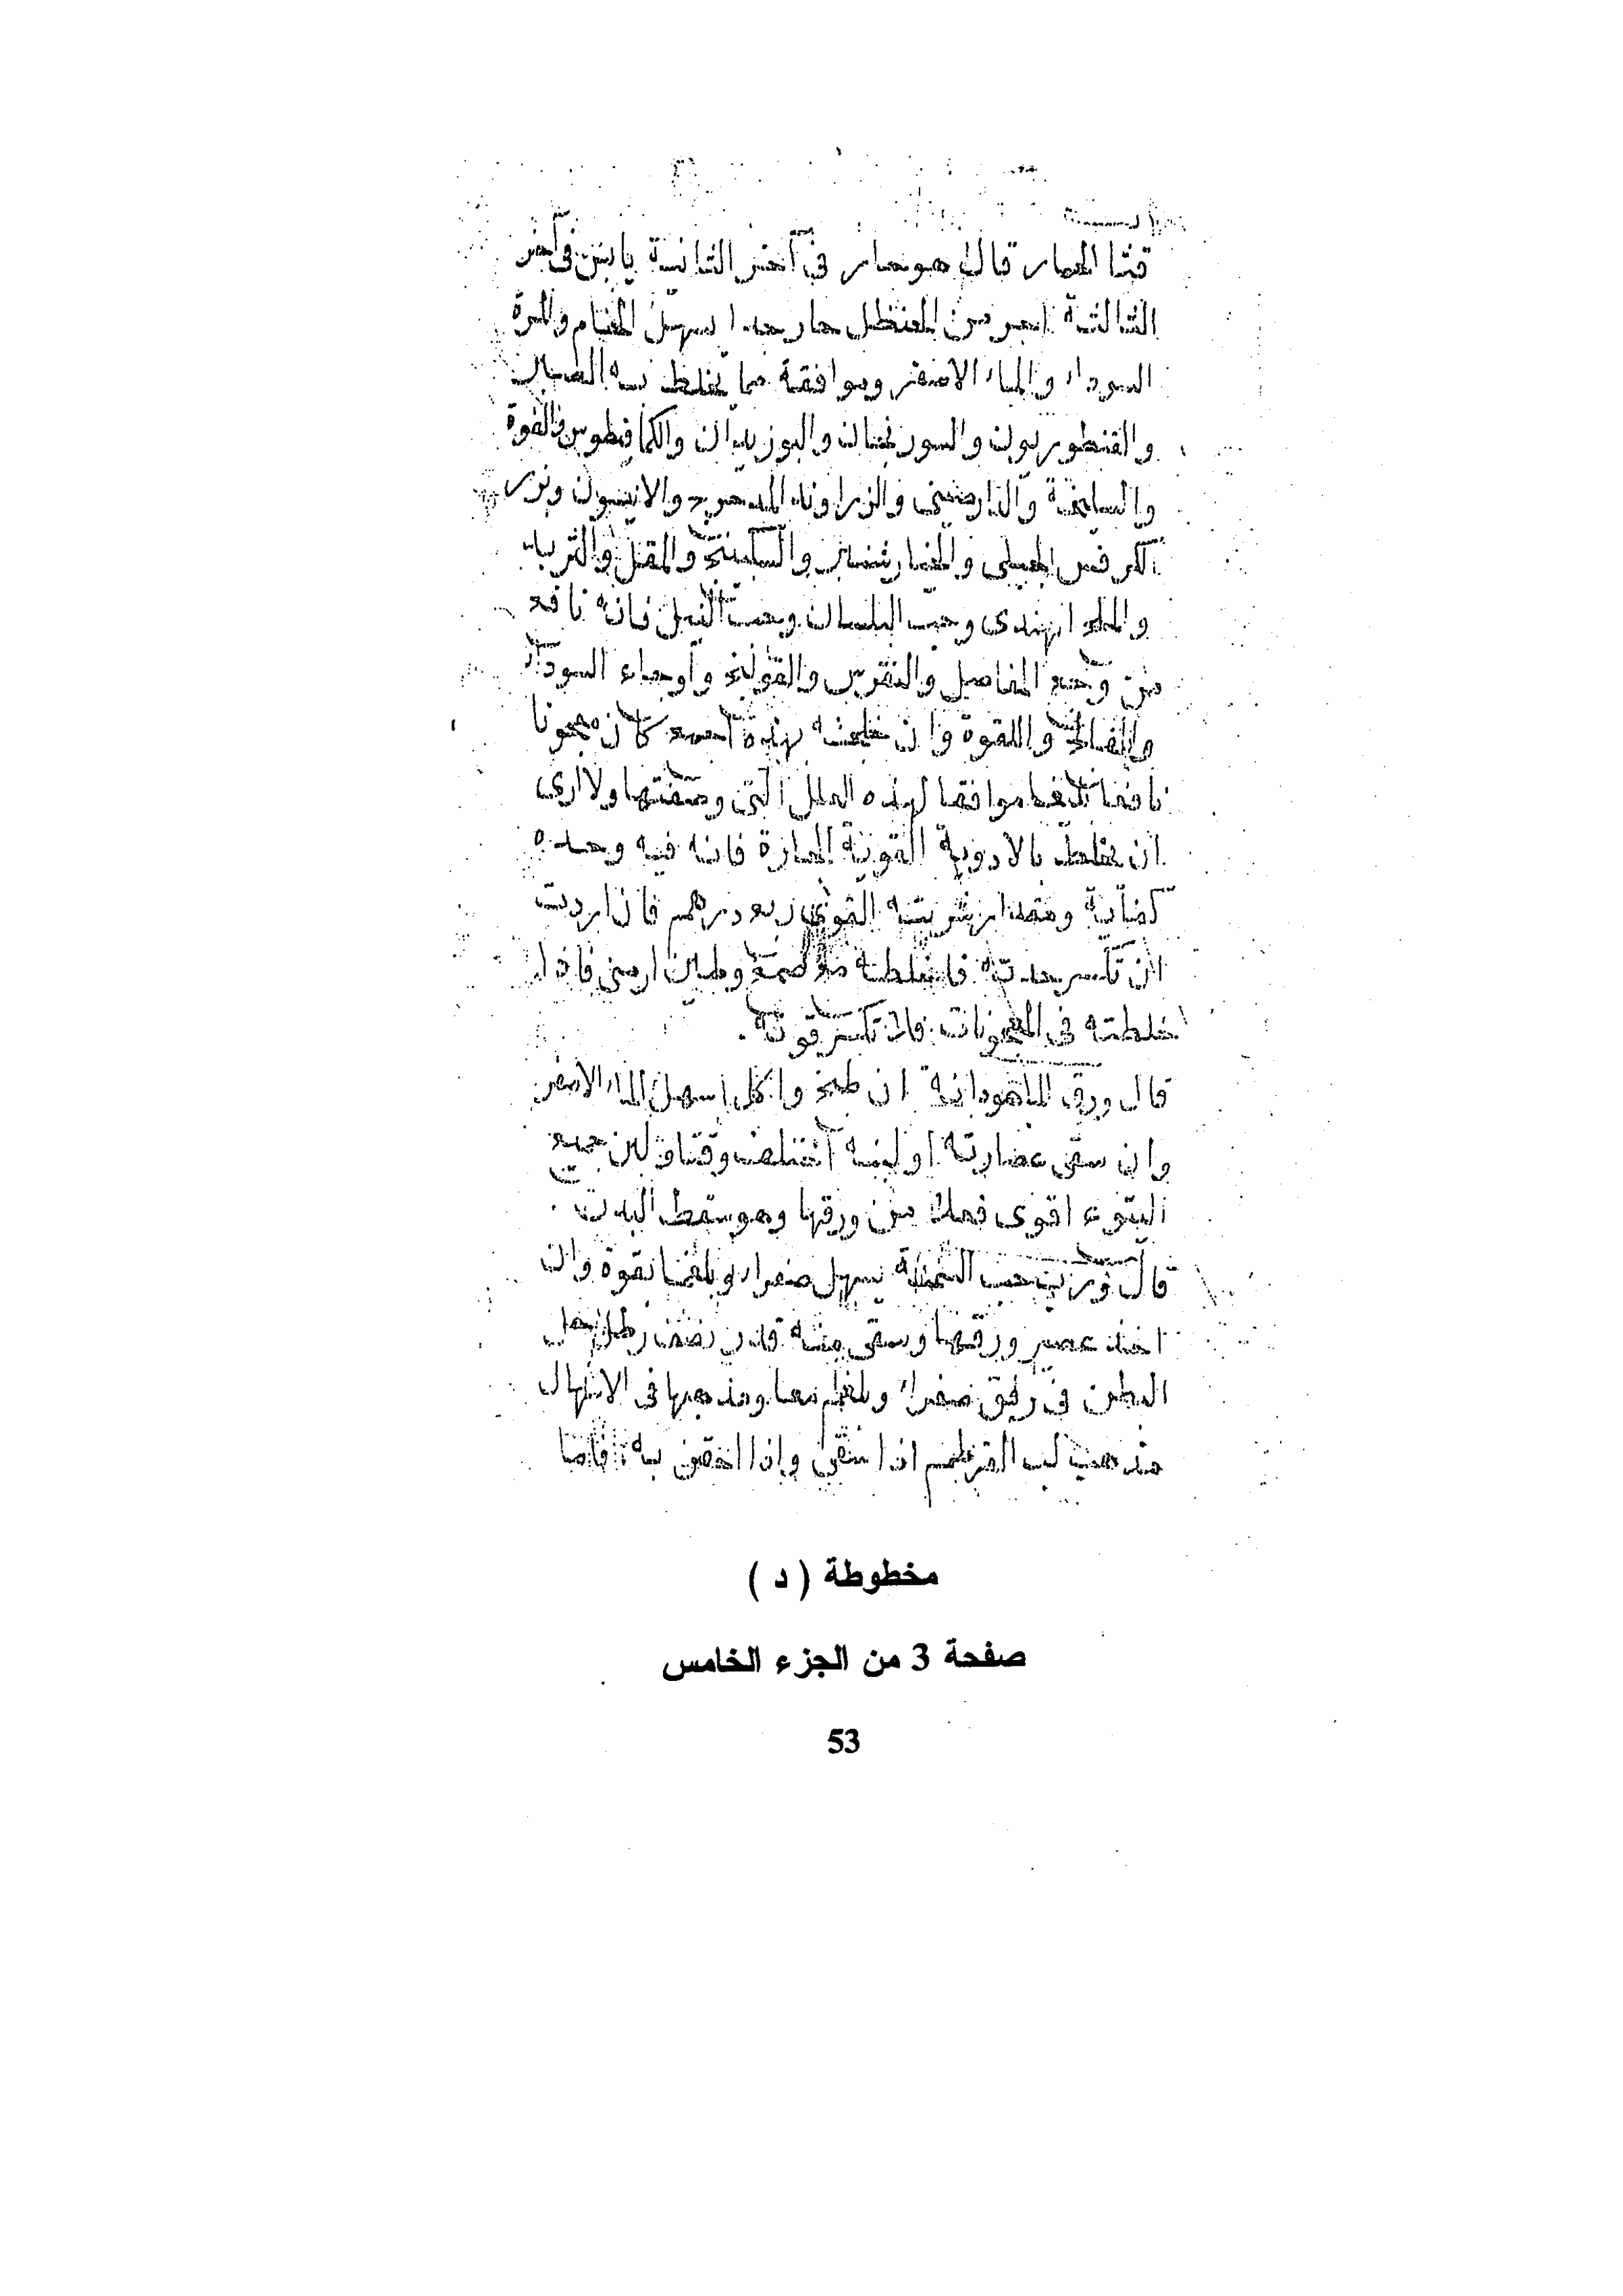 قثا الحمار قال هو حار في آخر الثانية يابس في آخر
الثالثة من الحنظل حار جدا يسهل الخام والمرة
السوداء والماء الاصفر وموافقة مما يخلط به الصبر
والقنطوريون والسورنجان والبوزيدان والكمافيطوس والفوة
والسليخة والدارصيني والزراوند المدحرج والانيسون وبزر
الكرفس الجبلي والخيارشنبر والسكبينج والمقل والتربد
والملح الهندى وحب البلسان وحب النيل فانه نافع
من وجع المفاصل والنقرس والقولنج واوجاع السوداء
والفالج واللقوة وان خلطته بهذه اجمع كان معجونا
نافعا موافقا لهذه العلل التي وصفتها ولا ارى
ان يخلط بالادوية القوية الحارة فانه فيه وحده
كفاية ومقدار شربته القوى ربع درهم فان اردت
ان تكسر حدته فاخلطه مع صمغ وطين ارمني فاذا
خلطته في المعجونات فلا تكسر قوته .
قال ورق الماهودانة ان طبخ واكل اسهل الماء الاصفر
وان سقى عصارته او لبنه لبن جميع
اليتوع اقوى فعلا من ورقها وهو يسقط البدن .
قال حب السمنة يسهل صفراء وبلغما بقوة وان
اخذ عصير ورقها وسقى منه قدر نصف رطل
البطن في رفق صفراء وبلغم معا ومذهبها في الاسهال
مذهب لب القرطم اذا سقى واذا احتقن به فاما
مخطوطة ( د )
صفحة 3 من الجزء الخامس
53